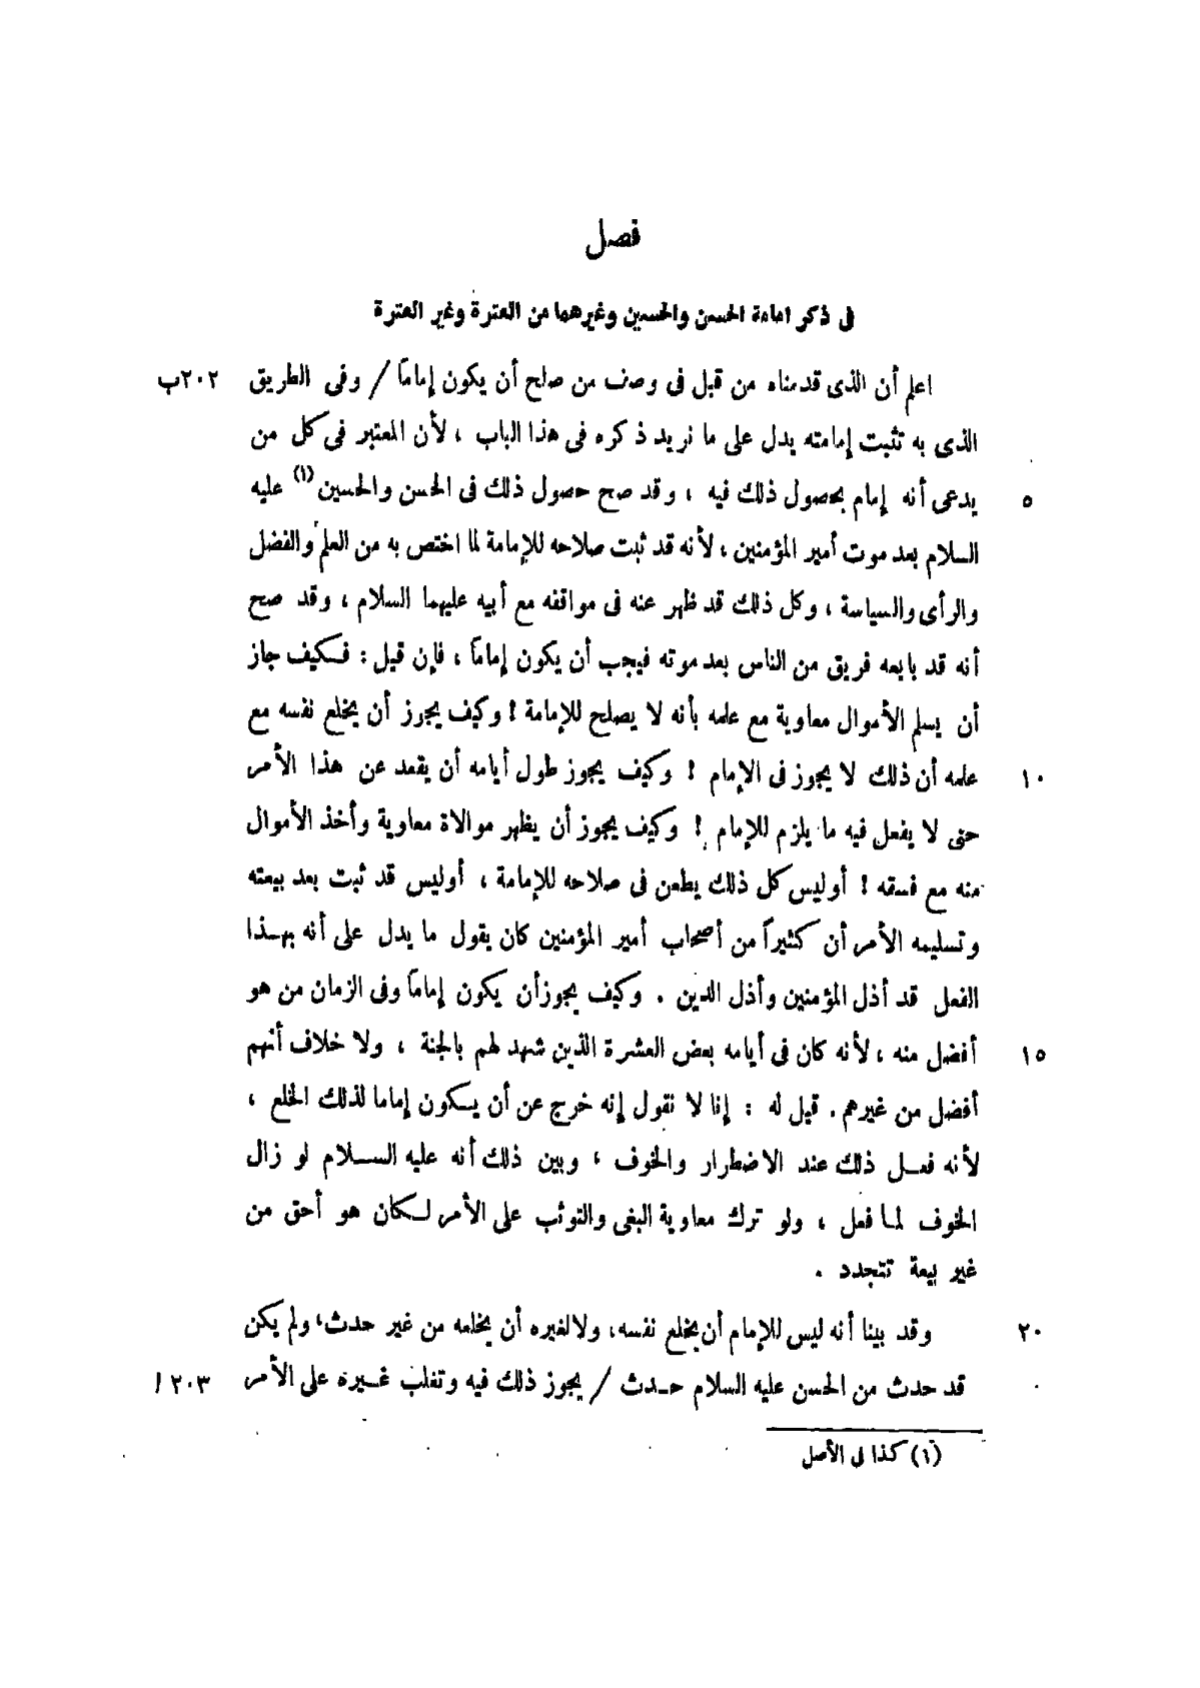 فصل
فى ذكر امامة الحسن والحسين وغيرهما من العترة وغير العترة
اعلم أن الذى قدمناه من قبل فى وصف من صلح أن يكون إماماً / وفى الطريق ٢٠٢ب
الذى به تثبت إمامته يدل على ما نريد ذكره فى هذا الباب ، لأن المعتبر فى كل من
يدعى أنه إمام بحصول ذلك فيه ، وقد صح حصول ذلك فى الحسن والحسين (١) عليه ٥
السلام بعد موت أمير المؤمنين ، لأنه قد ثبت صلاحه للإمامة لما اختص به من العلم والفضل
والرأى والسياسة ، وكل ذلك قد ظهر عنه فى مواقفه مع أبيه عليهما السلام ، وقد صح
أنه قد بايعه فريق من الناس بعد موته فيجب أن يكون إماماً ، فإن قيل : فكيف جاز
أن يسلم الأموال معاوية مع علمه بأنه لا يصلح للإمامة ! وكيف يجوز أن يخلع نفسه مع
علمه أن ذلك لا يجوز فى الإمام ! وكيف يجوز طول أيامه أن يقعد عن هذا الأمر ١٠
حتى لا يفعل فيه ما يلزم للإمام ! وكيف يجوز أن يظهر موالاة معاوية وأخذ الأموال
منه مع فسقه ! أوليس كل ذلك يطعن فى صلاحه للإمامة ، أوليس قد ثبت بعد بيعته
وتسليمه الأمر أن كثيراً من أصحاب أمير المؤمنين كان يقول ما يدل على أنه بهذا
الفعل قد أذل المؤمنين وأذل الدين . وكيف يجوز أن يكون إماماً وفى الزمان من هو
أفضل منه ، لأنه كان فى أيامه بعض العشرة الذين شهد لهم بالجنة ، ولا خلاف أنهم ١٥
أفضل من غيرهم . قيل له : إنا لا نقول إنه خرج عن أن يكون إماما لذلك الخلع ،
لأنه فعل ذلك عند الاضطرار والخوف ، وبين ذلك أنه عليه السلام لو زال
الخوف لما فعل ، ولو ترك معاوية البغى والتوثب على الأمر لكان هو أحق من
غير بيعة تتجدد .
وقد بينا أنه ليس للإمام أن يخلع نفسه، ولا لغيره أن يخلعه من غير حدث، ولم يكن ٢٠
قد حدث من الحسن عليه السلام حدث / يجوز ذلك فيه وتغلب غيره على الأمر ٢٠٣ا
(١) كذا فى الأصل